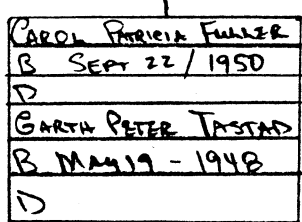 CAROL PATRICIA FULLER
B SEPT 22 / 1950
D
GARTH PETER TASTAD
B MAY 19 - 1948
D